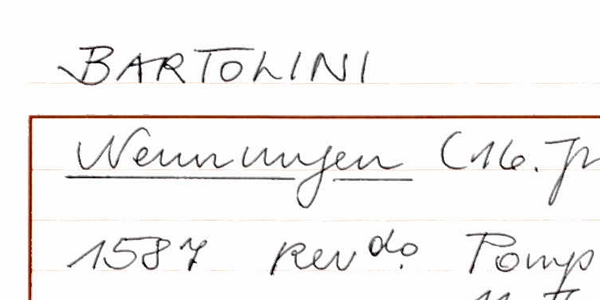 BARTOLINI
Nennungen (16. Jh
1587 Rev.do Pomp